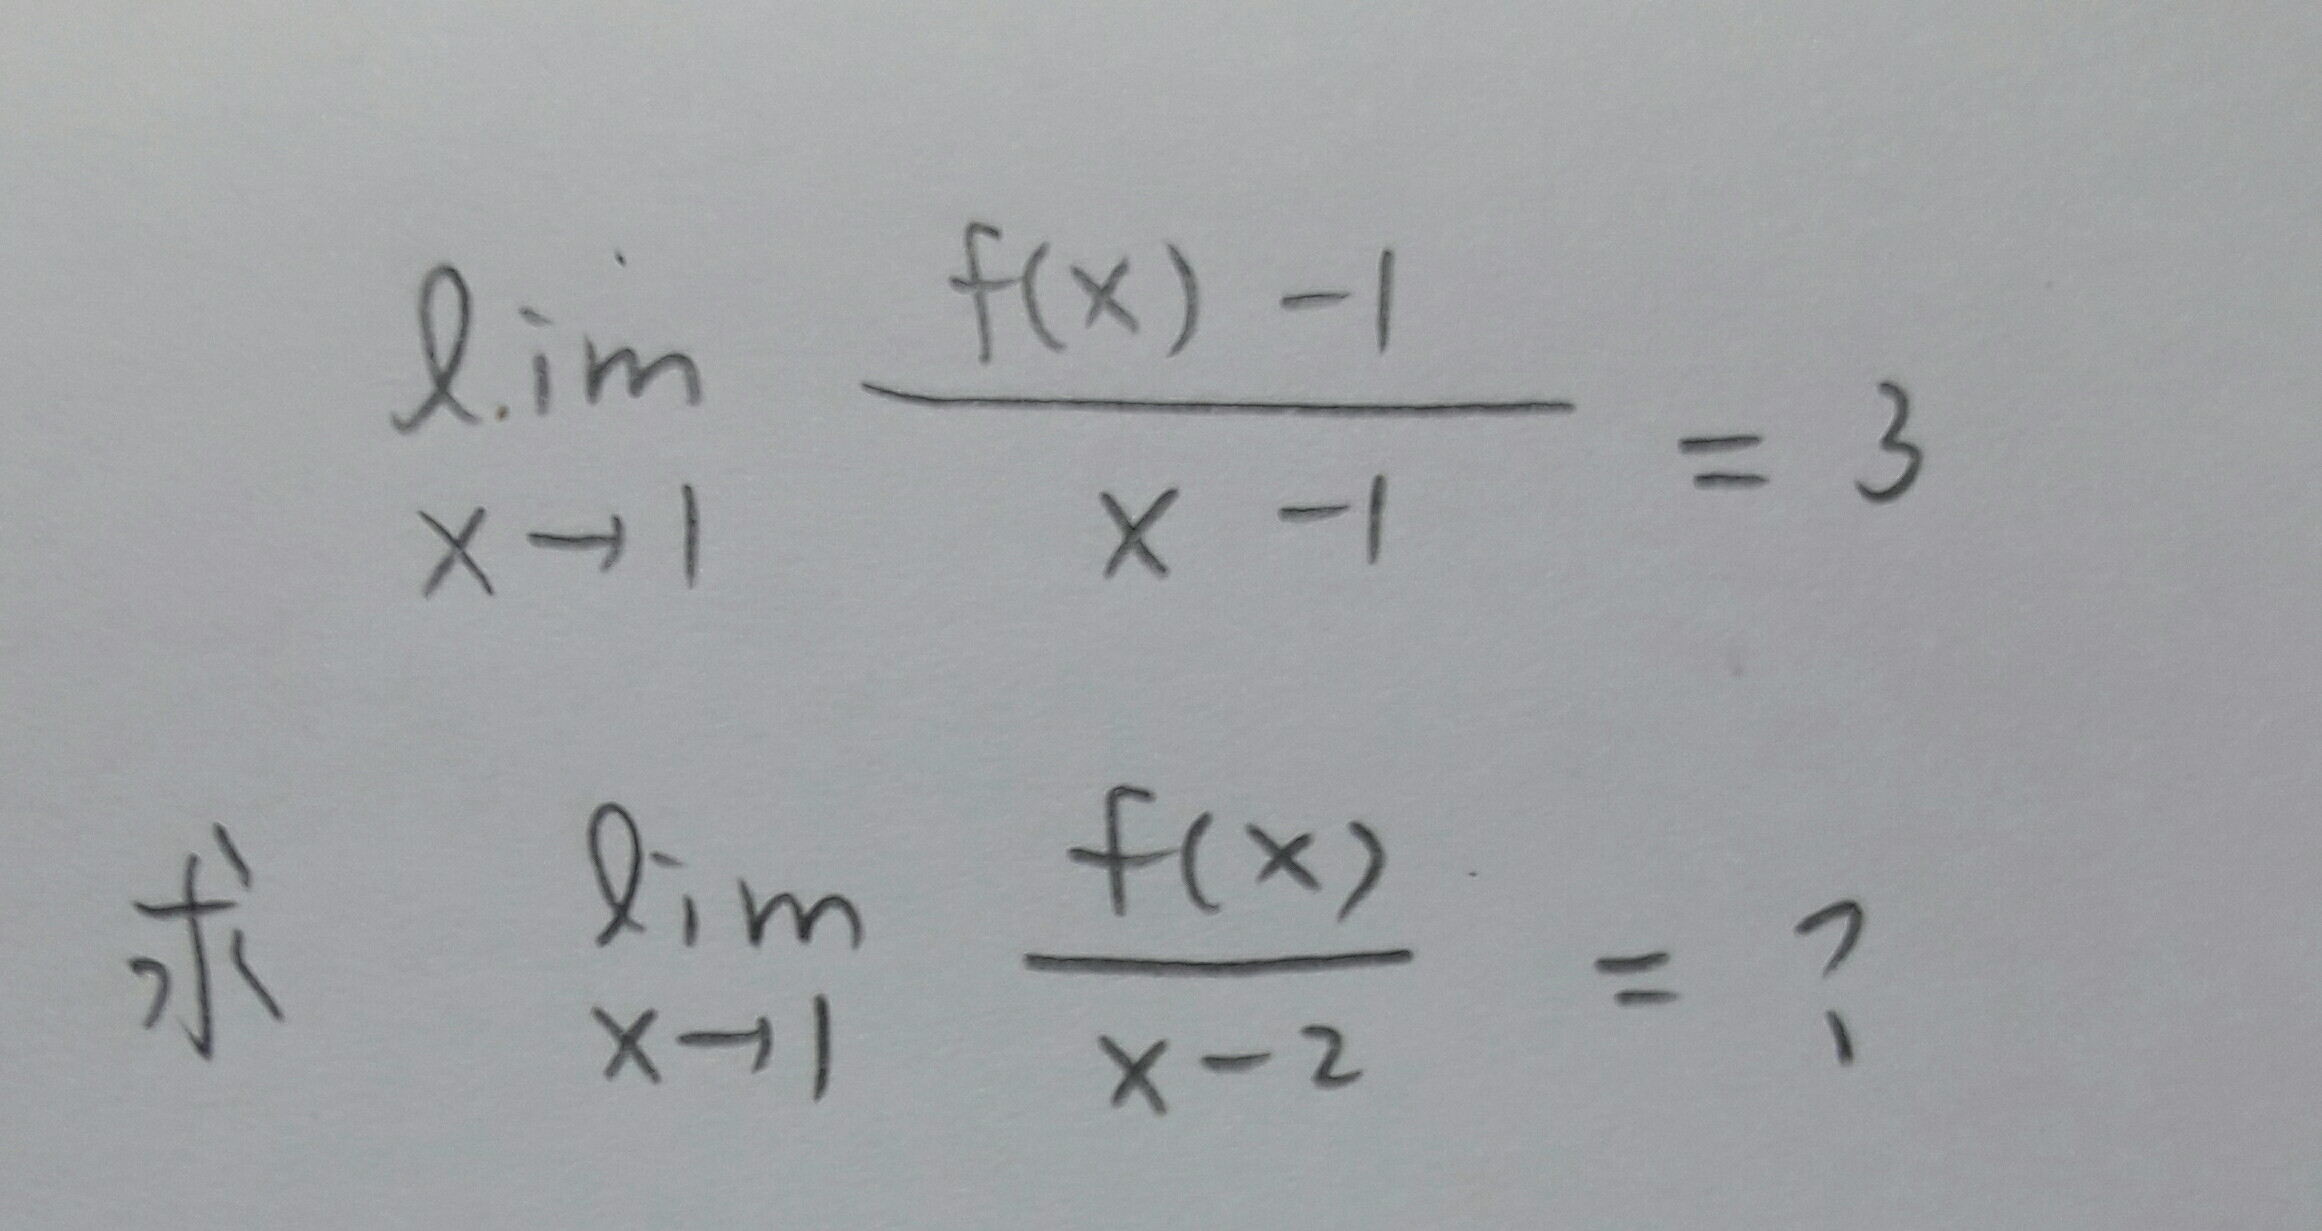 lim x→1 (f(x) - 1)/(x - 1) = 3
求 lim x→1 f(x)/(x-2) = ?